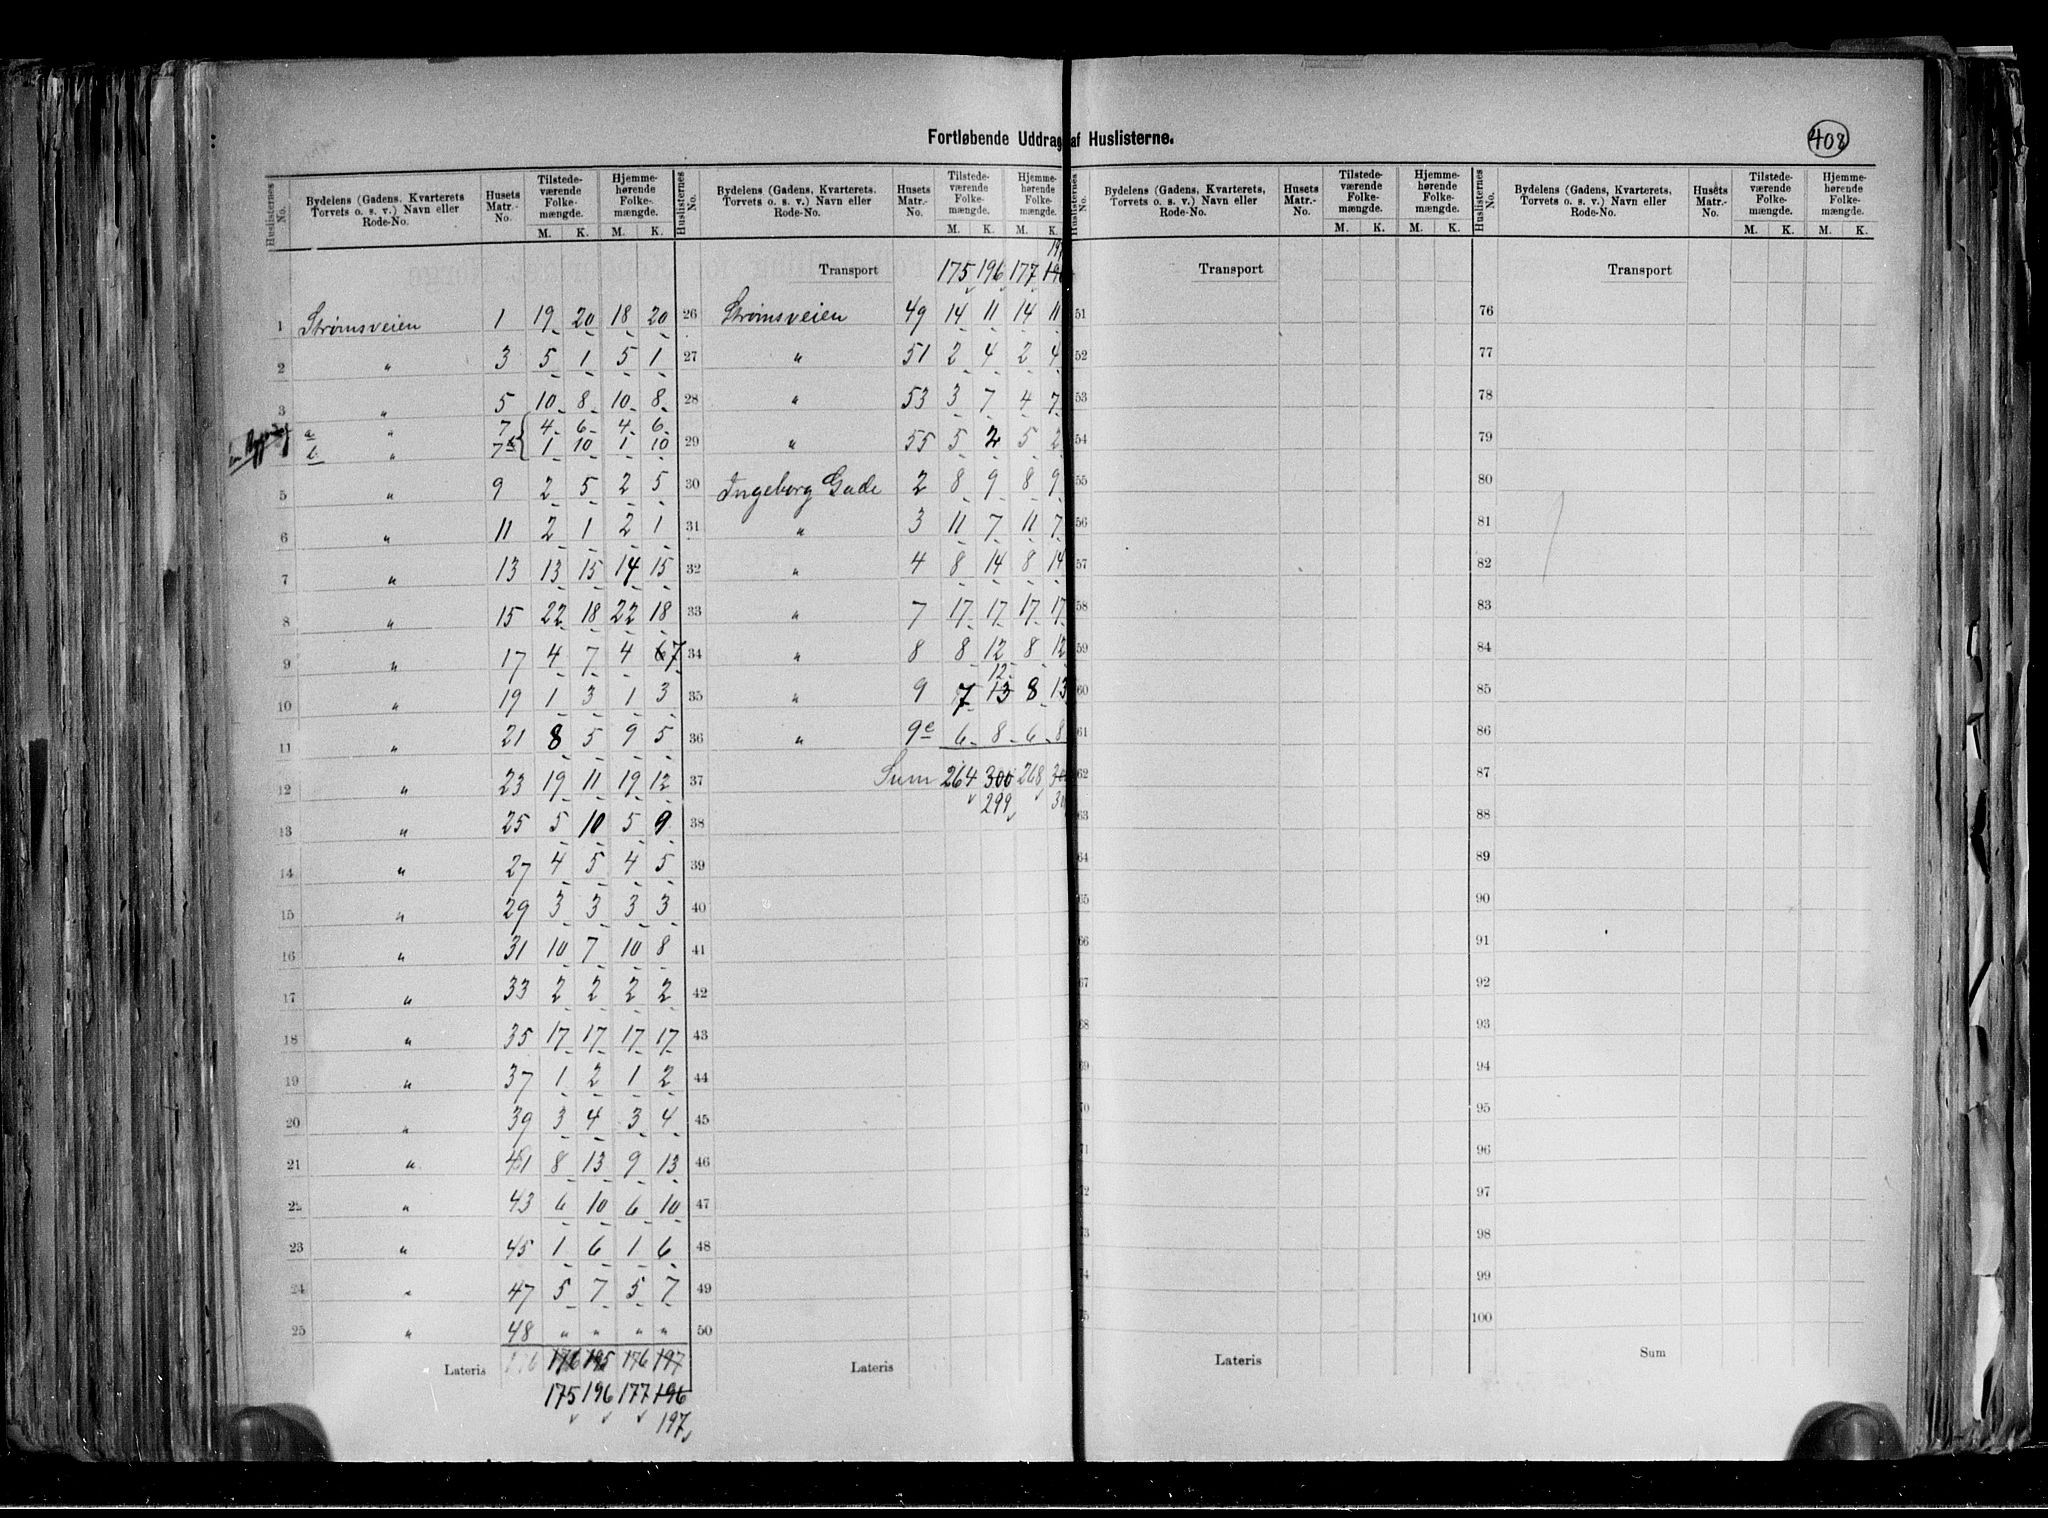 Fortløbende Uddrag af Huslisterne.
408
Huslisternes No. | Bydelens (Gadens, Kvarterets Torvets o. s. v.) Navn eller Rode-No. | Husets Matr.-No. | Tilstede-værende Folke-mængde. M. K. | Hjemme-hørende Folke-mængde. M. K.
1 Strømsveien 1 19 20 18 20
2 " 3 5 1 5 1
3 " 5 10 8 10 8
a " 7 4 6 4 6
b " 7 1 10 1 10
5 " 9 2 5 2 5
6 " 11 2 1 2 1
7 " 13 13 15 14 15
8 " 15 22 18 22 18
9 " 17 4 7 4 6 7
10 " 19 1 3 1 3
11 " 21 8 5 9 5
12 " 23 19 11 19 12
13 " 25 5 10 5 9
14 " 27 4 5 4 5
15 " 29 3 3 3 3
16 " 31 10 7 10 8
17 " 33 2 2 2 2
18 " 35 17 17 17 17
19 " 37 1 2 1 2
20 " 39 3 4 3 4
21 " 41 8 13 9 13
22 " 43 6 10 6 10
23 " 45 1 6 1 6
24 " 47 5 7 5 7
25 " 48 " " " "
Lateris 176 195 176 197
175 196 177 196
197
Huslisternes No. | Bydelens (Gadens, Kvarterets. Torvets o. s. v.) Navn eller Rode-No. | Husets Matr.-No. | Tilstede-værende Folke-mængde. M. K. | Hjemme-hørende Folke-mængde. M. K.
Transport 175 196 177
26 Strømsveien 49 14 11 14 11
27 " 51 2 4 2 4
28 " 53 3 7 4 7
29 " 55 5 2 5 2
30 Ingeborg Gade 2 8 9 8 9
31 " 3 11 7 11 7
32 " 4 8 14 8 14
33 " 7 17 17 17 17
34 " 8 8 12 8 12
12
35 " 9 7 13 8 13
36 " 9c 6 8 6 8
37 Sum 264 300 268
299
38
39
40
41
42
43
44
45
46
47
48
49
50
Lateris
Huslisternes No. | Bydelens (Gadens, Kvarterets, Torvets o. s. v.) Navn eller Rode-No. | Husets Matr.-No. | Tilstede-værende Folke-mængde. M. K. | Hjemme-hørende Folke-mængde. M. K.
Transport
51
52
53
54
55
56
57
58
59
60
61
62
63
64
65
66
67
68
69
70
71
72
73
74
75
Lateris
Huslisternes No. | Bydelens (Gadens, Kvarterets, Torvets o. s. v.) Navn eller Rode-No. | Husets Matr.-No. | Tilstede-værende Folke-mængde. M. K. | Hjemme-hørende Folke-mængde. M. K.
Transport
76
77
78
79
80
81
82
83
84
85
86
87
88
89
90
91
92
93
94
95
96
97
98
99
100
Sum